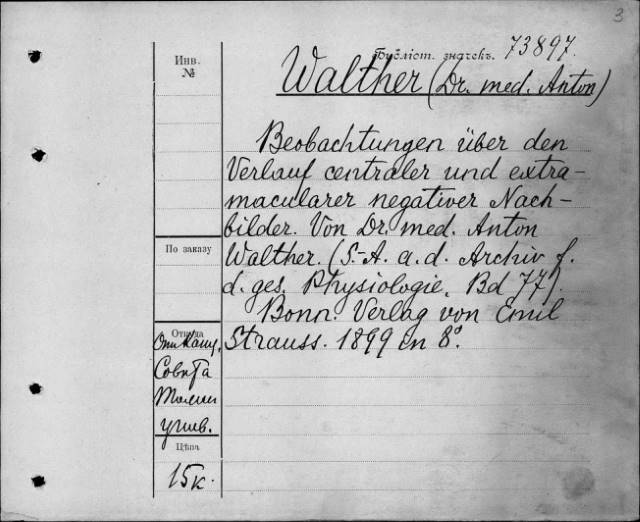 3
Инв. №
Библіот. значекъ. 73897.
Walther (Dr. med. Anton)
Beobachtungen über den
Verlauf centraler und extra-
macularer negativer Nach-
bilder. Von Dr. med. Anton
Walther. (S.-A. a. d. Archiv f.
d. ges. Physiologie, Bd 77).
Bonn. Verlag von Emil
Strauss. 1899 in 8°.
По заказу
Откуда
Совѣта
унив.
Цѣна
15 к.